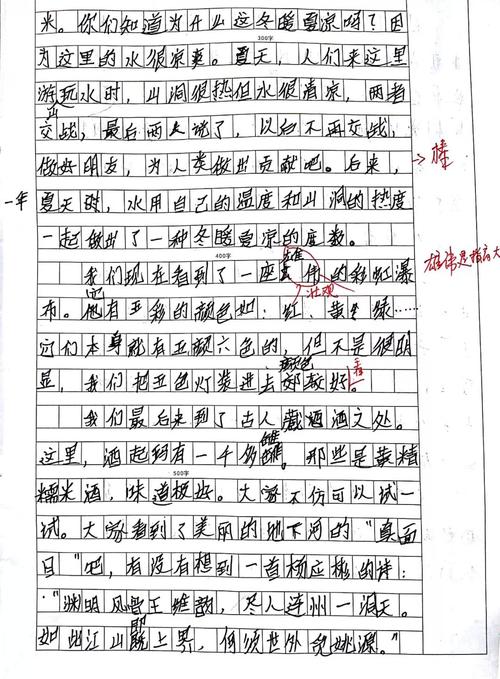 米。你们知道为什么这冬暖夏凉吗？因
300字
为这里的水很凉爽。夏天，人们来这里
游玩水时，山洞很热但水很清凉，两者
交战，最后两人说了，以后不再交战，
做好朋友，为人类做出贡献吧。后来，
棒
一年
夏天时，水用自己的温度和山洞的热度
一起做出了一种冬暖夏凉的度数。
400字
我们现在看到了一座雄伟的彩虹瀑
雄伟是指高大
布。它有五彩的颜色如：红、黄、绿……
壮观
它们本身就有五颜六色的，但不是很明
显，我们把五色灯装进去颜色就好看。
我们最后来到了古人藏酒酒之处。
这里，酒起码有一千多罐。那些是黄精
500字
糯米酒，味道极好。大家不仿可以试一
试。大家看到了美丽的地下河的“真面
目”吧，有没有想到一首杨应彬的诗：
“渊明风骨王维韵，尽人连州一洞天。
如此江山上界，何须世外觅姚源。”